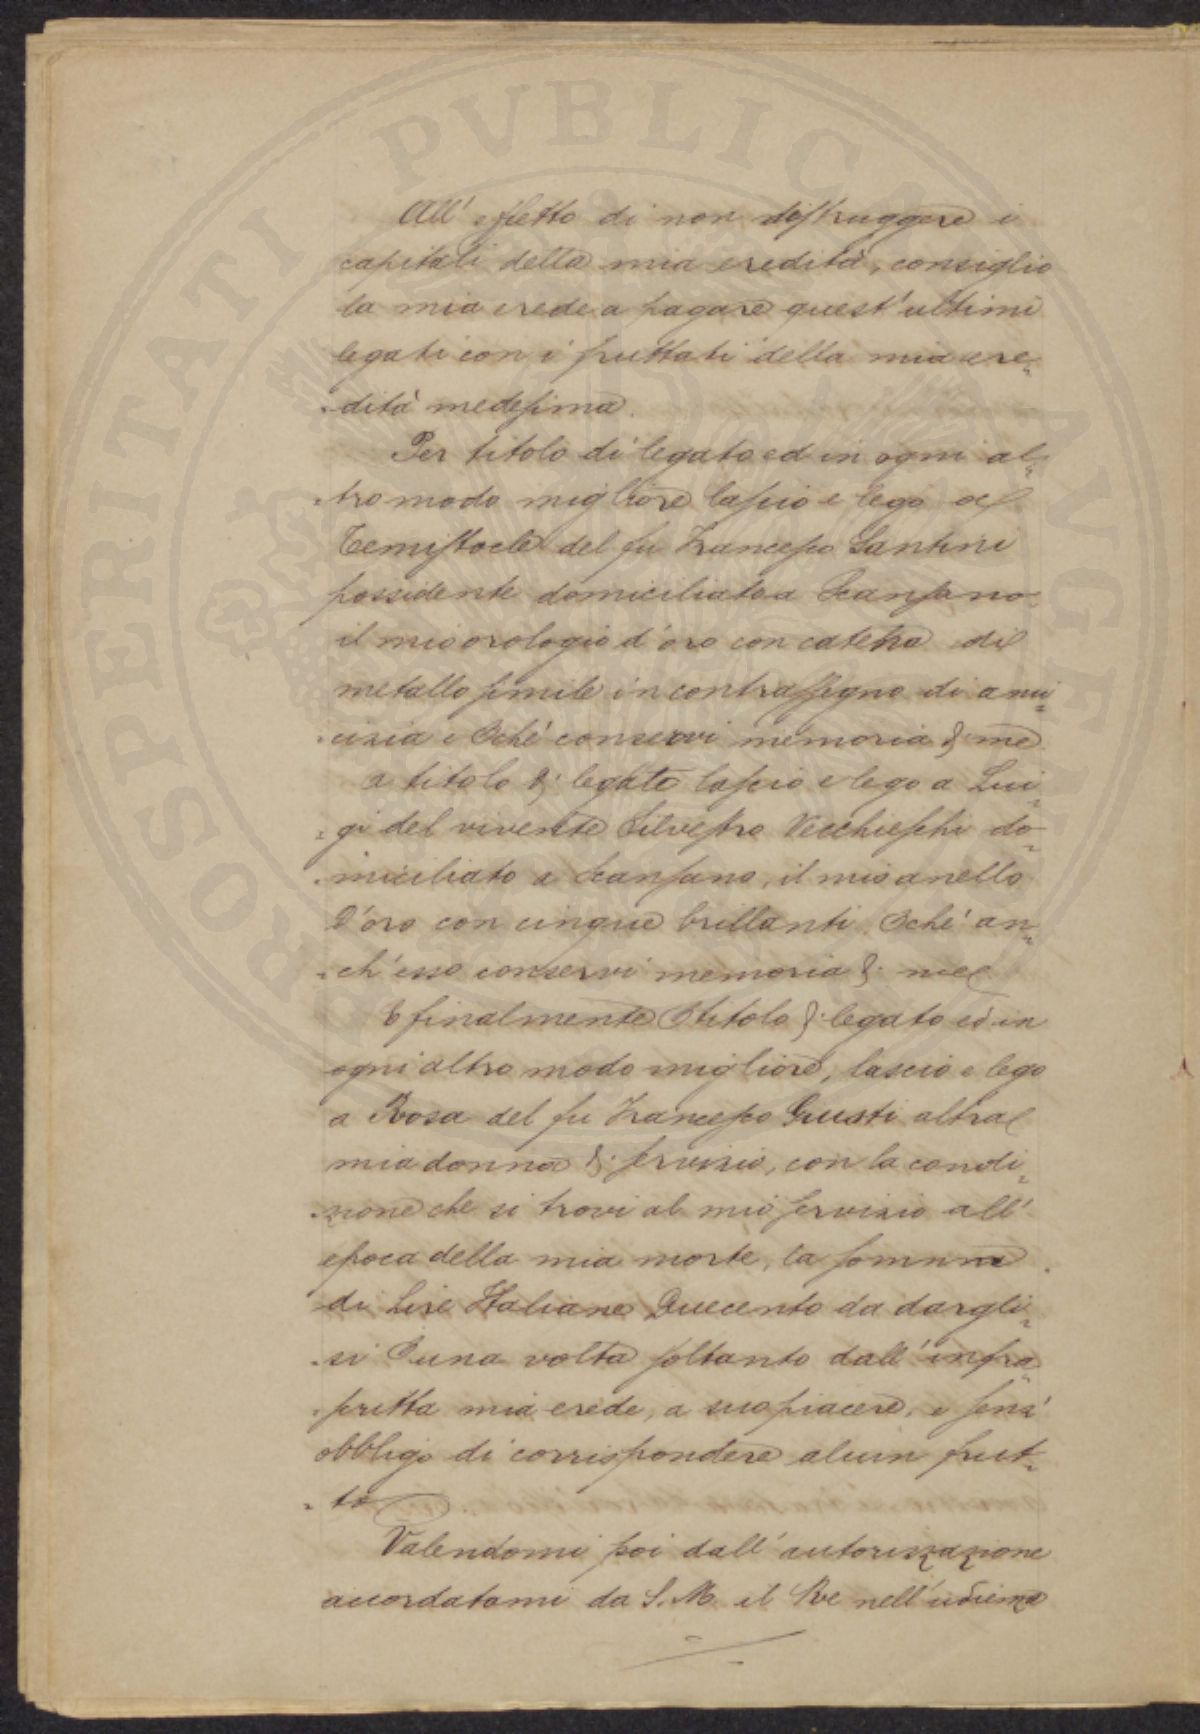 PROSPERITATI PVBLICAE AVGENDAE
All' effetto di non distruggere i
capitali della mia eredità, consiglio
la mia erede a pagare quest'ultimi
legati con i fruttati della mia ere„
„dità medesima.
Per titolo di legato ed in ogni al„
„tro modo migliore lascio e lego a
Temistocle del fu Francesco Santini
possidente domiciliato a Scansano
il mio orologio d'oro con catena di
metallo simile in contrassegno di ami„
„cizia e Pchè conservi memoria di me
A titolo di legato lascio e lego a Lui„
„gi del vivente Silvestro Vecchieschi do„
„miciliato a Scansano, il mio anello
d'oro con cinque brillanti Pchè an„
„ch'esso conservi memoria di me
E finalmente P titolo di legato ed in
ogni altro modo migliore, lascio e lego
a Rosa del fu Francesco Giusti altra
mia donna di servizio, con la condi„
„zione che si trovi al mio servizio all'
epoca della mia morte, la somma
di Lire Italiane Duecento da dargli„
„si P una volta soltanto dall'infra„
„scritta mia erede, a suo piacere, e senz'
obbligo di corrispondere alcun frut„
„to
Valendomi poi dall'autorizzazione
accordatami da S. M. il Re nell'udienza